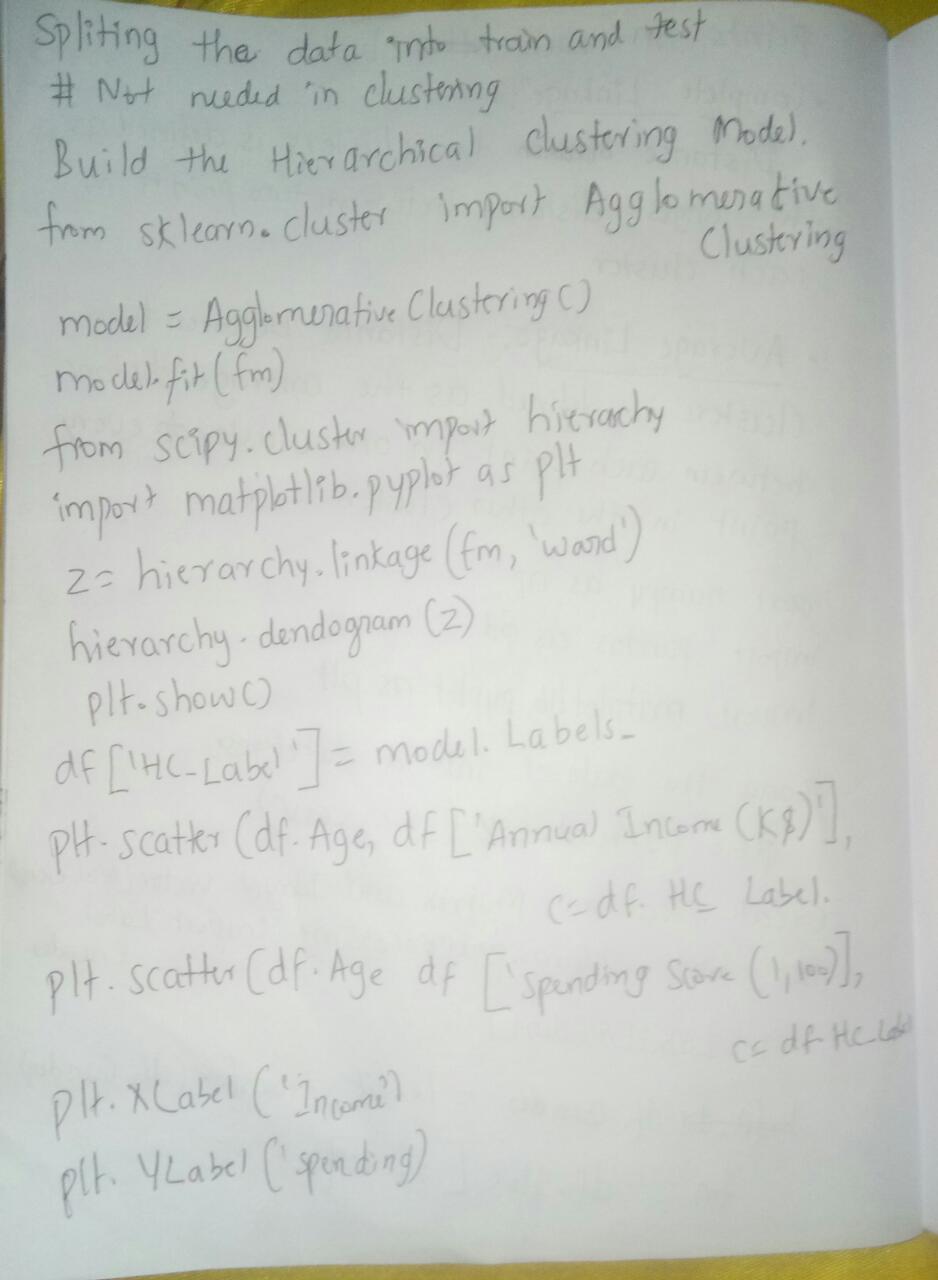 Spliting the data into train and test
# Not needed in clustering
Build the Hierarchical Clustering Model.
from sklearn.cluster import Agglomerative
Clustering
model = Agglomerative Clustering()
model.fit(fm)
from scipy.cluster import hierarchy
import matplotlib.pyplot as plt
z = hierarchy.linkage(fm, 'ward')
hierarchy.dendogram(z)
plt.show()
df['HC_Label'] = model.Labels_
plt.scatter(df.Age, df['Annual Income (K$)'],
c=df.HC Label.
plt.scatter(df.Age df ['Spending Score (1,100)],
c= df HC Label
plt.XLabel('Income')
plt.YLabel('spending)